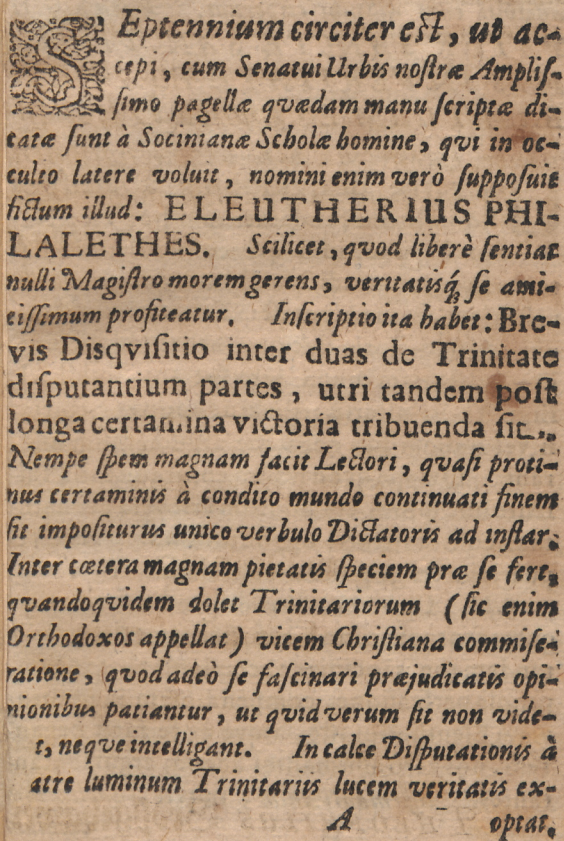 SEptennium circiter est, ut ac-
cepi, cum Senatui Urbis nostræ Amplis-
simo pagellæ quædam manu scriptæ di-
catæ sunt à Socinianæ Scholæ homine, qvi in oc-
culto latere voluit, nomini enim verò supposuit
fictum illud: ELEUTHERIUS PHI-
LALETHES. Scilicet, quod liberè sentiat
nulli Magistro morem gerens, veritatisq́; se ami-
cissimum profiteatur. Inscriptio ita habet: Bre-
vis Disqvisitio inter duas de Trinitate
disputantium partes, utri tandem post
longa certamina victoria tribuenda sit.
Nempe spem magnam facit Lectori, quasi proti-
nus certaminis à condito mundo continuati finem
sit impositurus unico verbulo Dictatoris ad instar.
Inter cœtera magnam pietatis speciem præ se fert,
quandoquidem dolet Trinitariorum (sic enim
Orthodoxos appellat) vicem Christiana commise-
ratione, quod adeò se fascinari præjudicatis opi-
nionibus patiantur, ut quid verum sit non vide-
t, neqve intelligant. In calce Disputationis à
atre luminum Trinitariis lucem veritatis ex-
A optat.